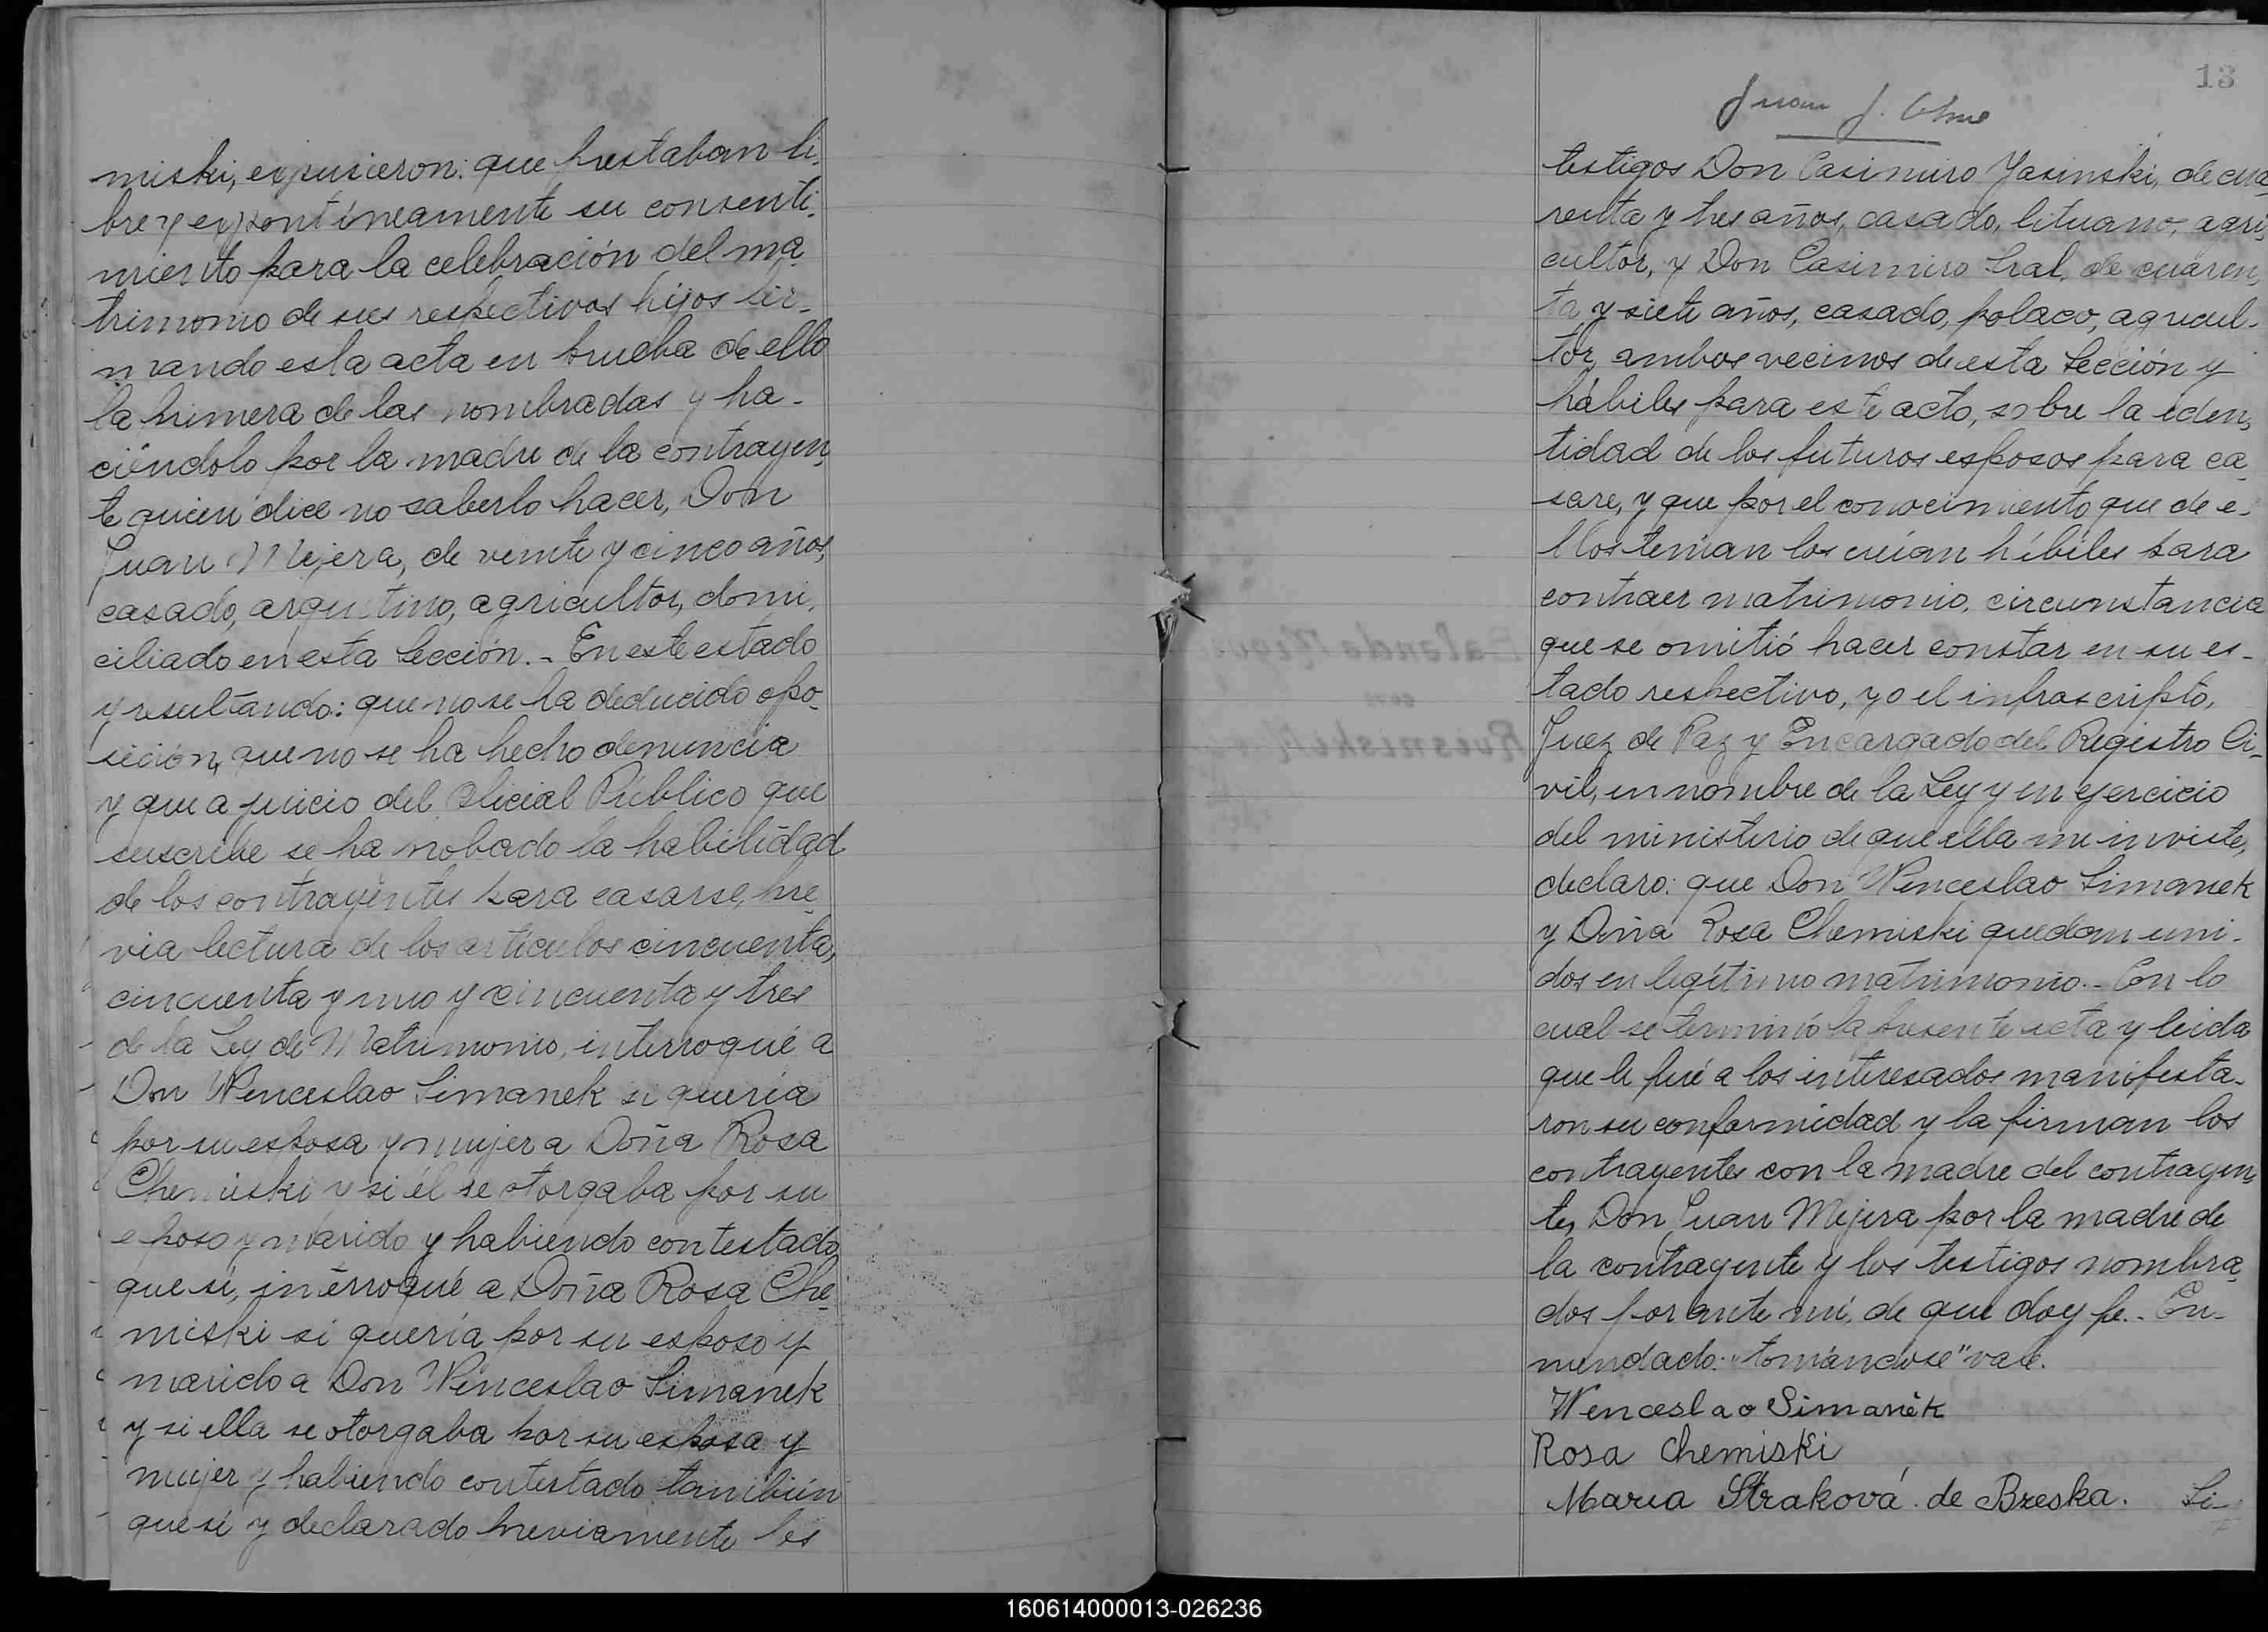 miski, expusieron: que prestaban li-
bre y expontáneamente su consenti-
miento para la celebración del ma-
trimonio de sus respectivos hijos fir-
mando esta acta en prueba de ello
la primera de las nombradas y ha-
ciéndolo por la madre de la contrayen-
te quien dice no saberlo hacer, Don
Juan Mejera, de veinte y cinco años,
casado, argentino, agricultor, domi-
ciliado en esta Sección.- En este estado
y resultando: que no se ha deducido opo-
sición, que no se ha hecho denuncia
y que a juicio del Oficial Público que
suscribe se ha probado la habilidad
de los contrayentes para casarse, pre-
via lectura de los artículos cincuenta,
cincuenta y uno y cincuenta y tres
de la Ley de Matrimonio, interrogué a
Don Wenceslao Simanek si quería
por su esposa y mujer a Doña Rosa
Chemiski y si él se otorgaba por su
esposo y marido y habiendo contestado
que sí, interrogué a Doña Rosa Che-
miski si quería por su esposo y
marido a Don Wenceslao Simanek
y si ella se otorgaba por su esposa y
mujer y habiendo contestado también
que sí y declarado previamente los
13
Juan J.
testigos Don Casimiro Yasinski, de cua-
renta y tres años, casado, lituano, agri-
cultor, y Don Casimiro Sral, de cuaren-
ta y siete años, casado, polaco, agricul-
tor, ambos vecinos de esta Sección y
hábiles para este acto, sobre la iden-
tidad de los futuros esposos para ca-
sarse, y que por el conocimiento que de e-
llos tenían los creían hábiles para
contraer matrimonio, circunstancia
que se omitió hacer constar en su es-
tado respectivo, yo el infrascripto,
Juez de Paz y Encargado del Registro Ci-
vil, en nombre de la Ley y en ejercicio
del ministerio de que ella me inviste,
declaro: que Don Wenceslao Simanek
y Doña Rosa Chemiski quedan uni-
dos en legítimo matrimonio.- Con lo
cual se terminó la presente acta y leída
que le fué a los interesados manifesta-
ron su conformidad y la firman los
contrayentes con la madre del contrayen-
te, Don Juan Mejera por la madre de
la contrayente y los testigos nombra-
dos por ante mí, de que doy fe.- En-
mendado: "tomándose" vale.
Wenceslao Simanek
Rosa Chemiski
Maria Straková de Breska. Si-
160614000013-026236